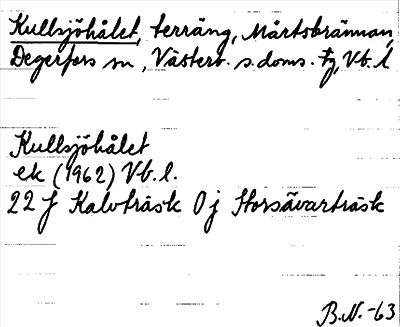 Kullsjöhålet, terräng, Mårtsbrännan,
Degerfors sn, Västerb. s. doms. tg, Vb. l
Kullsjöhålet
ek (1962) Vb. l.
22 J Kalvträsk 0 j Storsävarträsk
B.N. -63